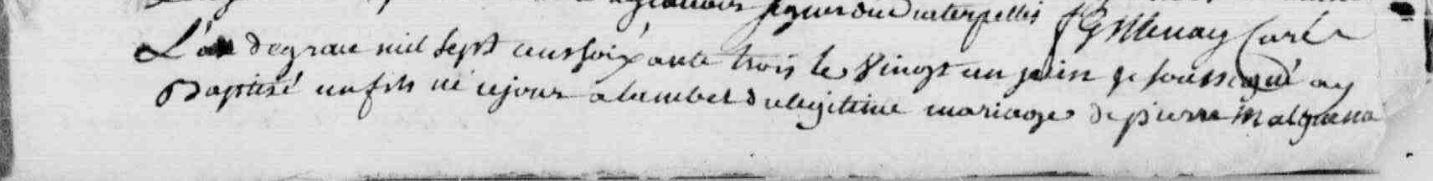 signer dûe interpellés Curé
L'an de grace mil sept cens soixante trois le vingt un juin je soussigné ay
Baptisé un fils né ce jour a lambel du legitime mariage de pierre